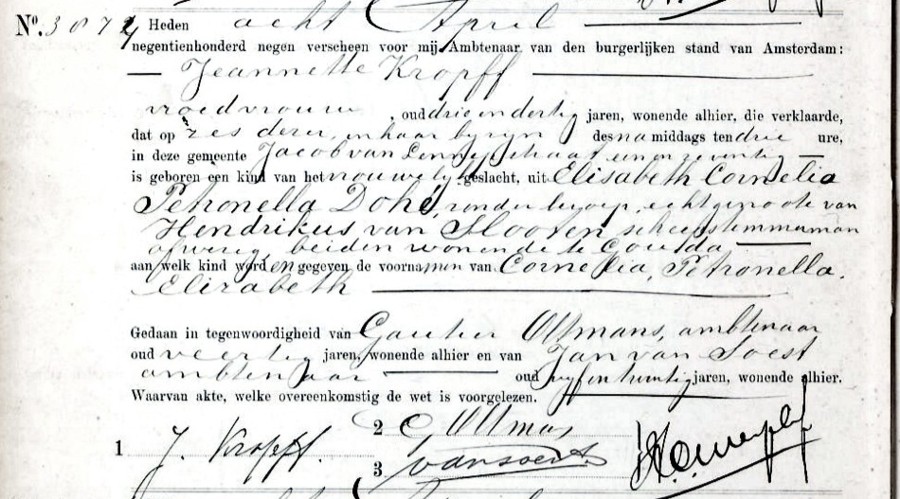 No. 3872 Heden acht April
negentienhonderd negen verscheen voor mij Ambtenaar van den burgerlijken stand van Amsterdam:
Jeannette Kropff
vroedvrouw, oud drie en dertig jaren, wonende alhier, die verklaarde,
dat op zes dezer, in haar bijzijn des na middags ten drie ure,
in deze gemeente Jacob van Lennepstraat een en zeventig
is geboren een kind van het vrouwelijk geslacht, uit Elisabeth Cornelia
Petronella Dohé, zonder beroep, echtgenoote van
Hendrikus van Slooten, scheepstimmerman
afwezig beiden wonende te Gouda
aan welk kind worden gegeven de voornamen van Cornelia, Petronella,
Elizabeth
Gedaan in tegenwoordigheid van Oltmans, ambtenaar
oud veertig jaren, wonende alhier en van Jan van Soest
ambtenaar oud vijf en twintig jaren, wonende alhier.
Waarvan akte, welke overeenkomstig de wet is voorgelezen.
1 J. Kropff.
2 G Oltmans
3 van Soest